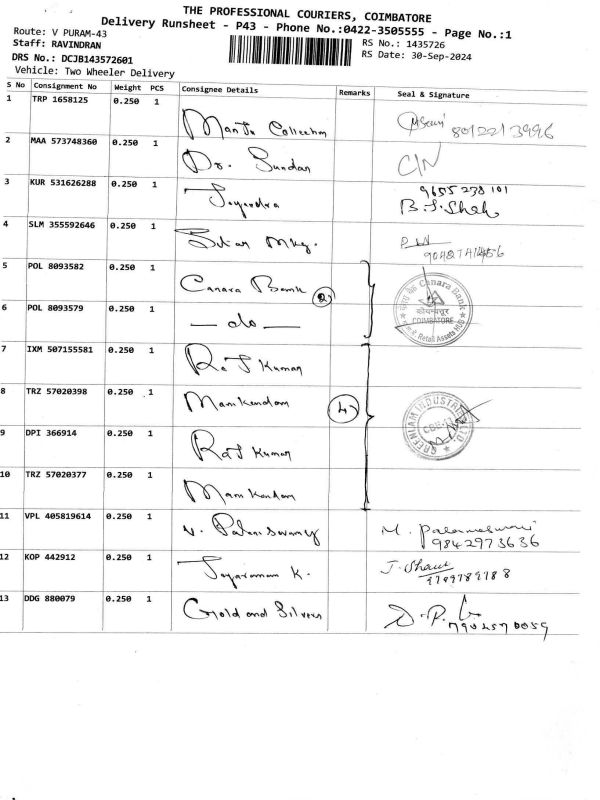 THE PROFESSIONAL COURIERS, COIMBATORE
Delivery Runsheet - P43 - Phone No.:0422-3505555 - Page No.:1
Route: V PURAM-43
Staff: RAVINDRAN
RS No.: 1435726
DRS No.: DCJB143572601
RS Date: 30-Sep-2024
Vehicle: Two Wheeler Delivery
S No Consignment No Weight PCS Consignee Details Remarks Seal & Signature
1 TRP 1658125 0.250 1 8012213996
2 MAA 573748360 0.250 1 Dr. Sundar C/N
3 KUR 531626288 0.250 1 Jayendra 9655 238 101
4 SLM 355592646 0.250 1 Mkg.
5 POL 8093582 0.250 1 Canara Bank 2 Canara Bank COIMBATORE Retail Assets Hub
6 POL 8093579 0.250 1 — do —
7 IXM 507155581 0.250 1 Raj Kumar
8 TRZ 57020398 0.250 1 Manikandan 4 GREENLAM INDUSTRIES LTD
9 DPI 366914 0.250 1 Raj Kumar
10 TRZ 57020377 0.250 1 Manikandan
11 VPL 405819614 0.250 1 N. Palaniswamy 9842973636
12 KOP 442912 0.250 1 Jayaraman K. 9789789788
13 DDG 880079 0.250 1 Gold and Silvers